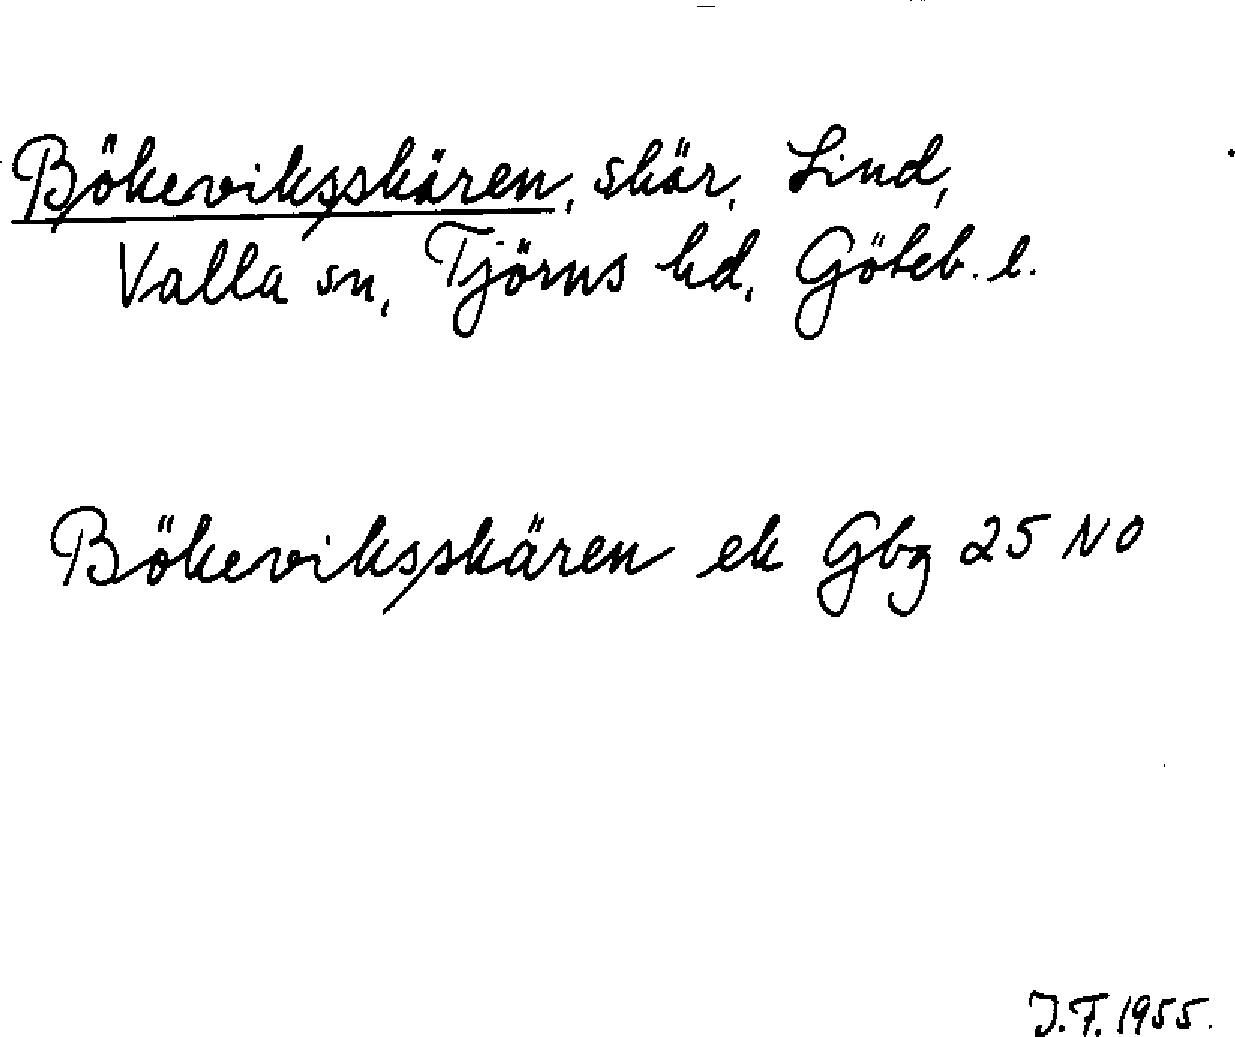 Bökeviksskären, skär, Lind,
Valla sn, Tjörns hd, Göteb. l.
Bökeviksskären ek Gbg 25 NO
J.F. 1955.